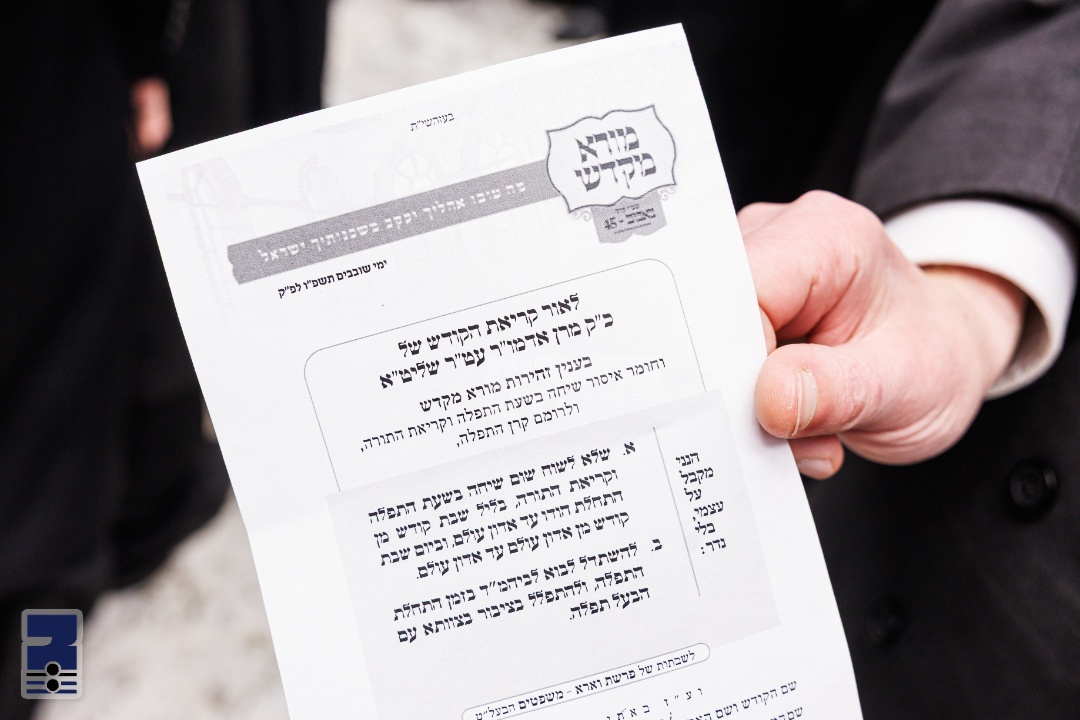 בעזהשי״ת
מורא
מקדש
מה טובו אהליך יעקב משכנותיך ישראל
ימי שובבים תשפ״ו לפ״ק
לאור קריאת הקודש של
כ״ק מרן אדמו״ר עט״ר שליט״א
בענין זהירות מורא מקדש
וחומר איסור שיחה בשעת התפלה וקריאת התורה,
ולרומם קרן התפלה,
הנני
מקבל
על
עצמי,
בלי
נדר:
א. שלא לשוח שום שיחה בשעת התפלה
וקריאת התורה, בליל שבת קודש מן
התחלת הודו עד אדון עולם, וביום שבת
קודש מן אדון עולם עד אדון עולם.
ב. להשתדל לבוא לביהמ״ד בזמן התחלת
התפלה, ולהתפלל בציבור בצוותא עם
הבעל תפלה.
לשבתות של פרשת וארא - משפטים הבעל״ט
ועי״ז באתי
שם הקודש ושם